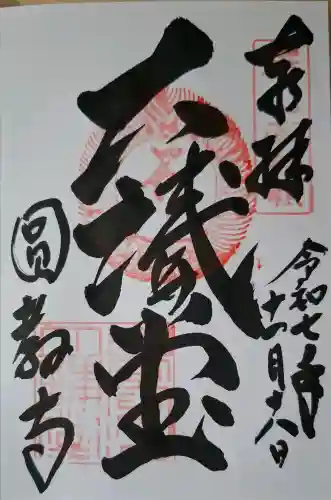 奉拝
大講堂
圓教寺
令和七年
十一月十八日